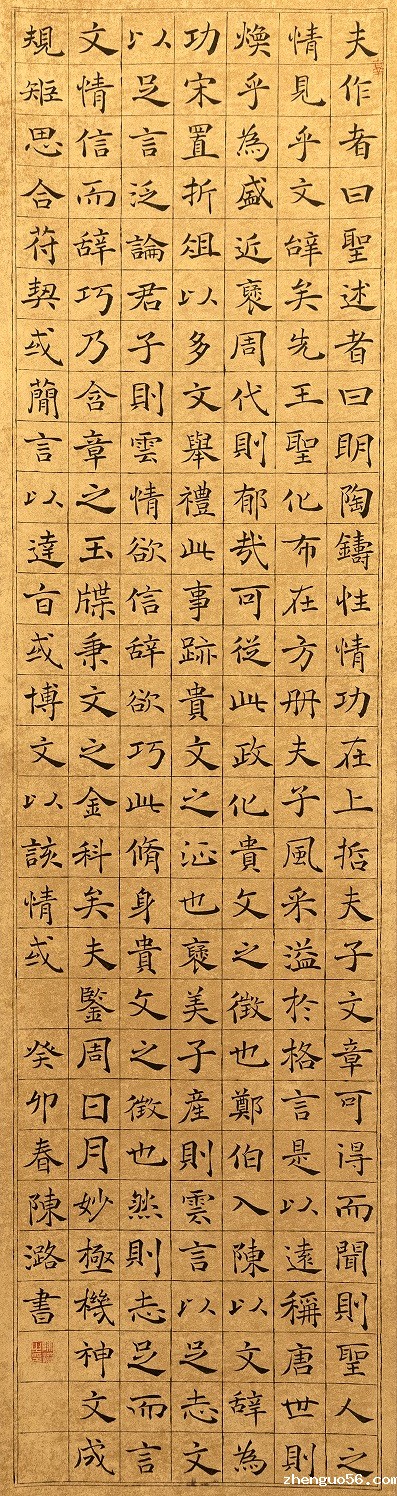 夫作者曰聖述者曰明陶鑄性情功在上哲夫子文章可得而聞則聖人之
情見乎文辭矣先王聖化布在方冊夫子風采溢於格言是以遠稱唐世則
煥乎為盛近褒周代則郁哉可從此政化貴文之徵也鄭伯入陳以文辭為
功宋置折俎以多文舉禮此事跡貴文之证也褒美子產則雲言以足志文
以足言泛論君子則雲情欲信辭欲巧此脩身貴文之徵也然則志足而言
文情信而辭巧乃含章之玉牒秉文之金科矣夫鑒周日月妙極機神文成
規矩思合苻契或簡言以達旨或博文以該情或
癸卯春陳潞書
zhenguo56.com